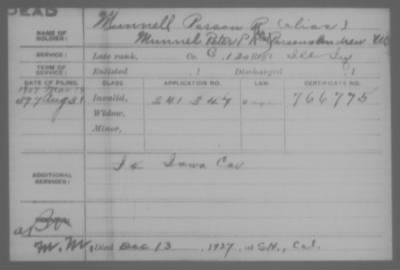 DEAD
NAME OF SOLDIER: Munnell Parson R (alias)
Munnel Peter P Parsons Andrew
SERVICE: Late rank, Co. G, 120 Regt Ill Inf
TERM OF SERVICE: Enlisted , 1 Discharged , 1
DATE OF FILING. CLASS APPLICATION NO. LAW CERTIFICATE NO.
Aug 21 Invalid, 241 247 766775
Widow,
Minor,
ADDITIONAL SERVICES: Iowa Cav
Died Dec 13, 1927, at S.H., Cal.